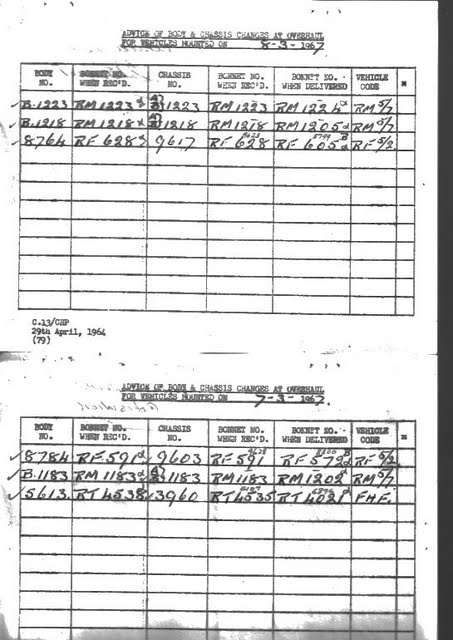 ADVICE OF BODY & CHASSIS CHANGES AT OVERHAUL
FOR VEHICLES MOUNTED ON 8-3-1967
BODY NO. BONNET NO. WHEN REC'D. CHASSIS NO. BONNET NO. WHEN REC'D. BONNET NO. WHEN DELIVERED VEHICLE CODE
B.1223 RM1223 1223 RM1223 RM1224 RM5/7
B.1218 RM1218 1218 RM1218 RM1205 RM5/7
8764 RF628 9617 RF628 RF605 RF5/2
C.13/CHP
29th April, 1964
(79)
ADVICE OF BODY & CHASSIS CHANGES AT OVERHAUL
FOR VEHICLES MOUNTED ON 7-3-1967.
BODY NO. BONNET NO. WHEN REC'D. CHASSIS NO. BONNET NO. WHEN REC'D. BONNET NO. WHEN DELIVERED VEHICLE CODE
8784 RF591 9603 RF591 RF572 RF5/2
B.1183 RM1183 1183 RM1183 RM1202 RM5/7
5613 RT4538 3960 RT4535 RT4021